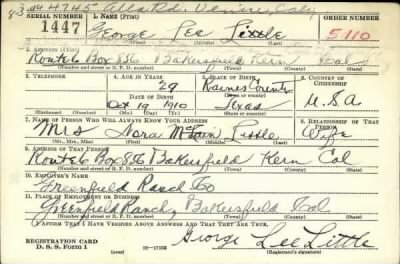 8-3-44 4745 Alla Rd. Venice, Calif
SERIAL NUMBER 1. NAME (Print) ORDER NUMBER
1447 George Lee Little 5110
(First) (Middle) (Last)
2. ADDRESS (Print)
Route 6 Box 86 Bakersfield Kern Cal
(Number and street or R. F. D. number) (Town) (County) (State)
3. TELEPHONE 4. AGE IN YEARS 5. PLACE OF BIRTH 6. COUNTRY OF CITIZENSHIP
29
DATE OF BIRTH
Oct 19 1910 Texas U.S.A
(Mo.) (Day) (Yr.) (State or country)
7. NAME OF PERSON WHO WILL ALWAYS KNOW YOUR ADDRESS 8. RELATIONSHIP OF THAT PERSON
Mrs Dora McLain Little Wife
(Mr., Mrs., Miss) (First) (Middle) (Last)
9. ADDRESS OF THAT PERSON
Route 6 Box 86 Bakersfield Kern Cal
(Number and street or R. F. D. number) (Town) (County) (State)
10. EMPLOYER'S NAME
Greenfield Ranch Co
11. PLACE OF EMPLOYMENT OR BUSINESS
Greenfield Ranch, Bakersfield Cal
(Number and street or R. F. D. number) (Town) (County) (State)
I AFFIRM THAT I HAVE VERIFIED ABOVE ANSWERS AND THAT THEY ARE TRUE.
REGISTRATION CARD
D. S. S. Form 1 (over) 16-17105 George Lee Little
(Registrant's signature)